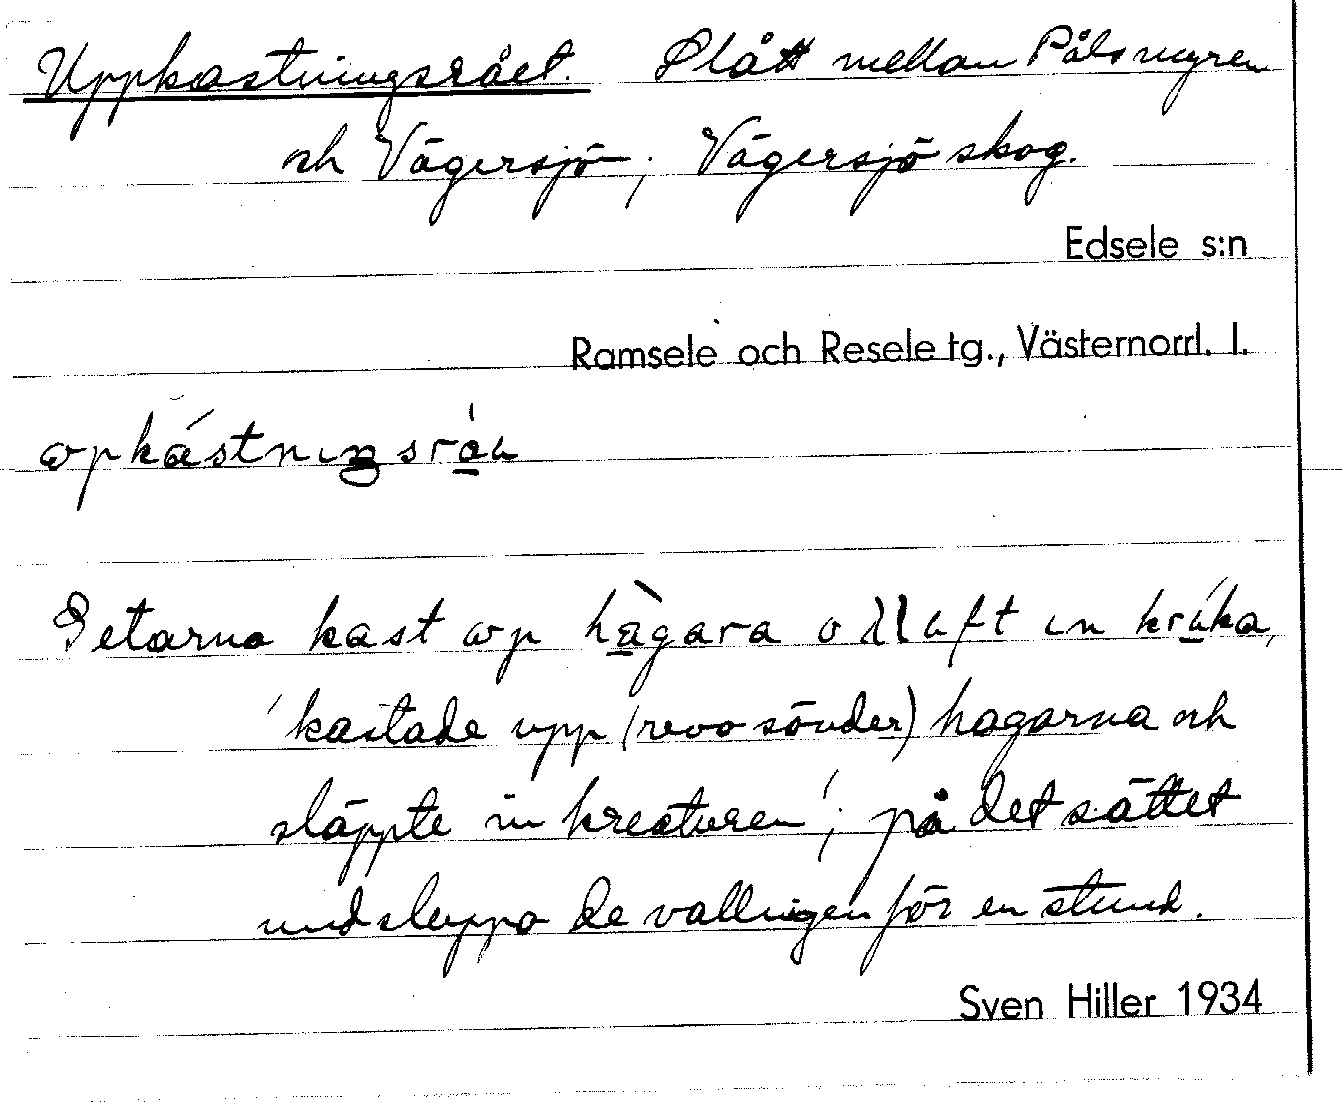 Uppkastningsrået. Slått mellan Pålsmyren
och Vägersjö; Vägersjö skog.
Edsele s:n
Ramsele och Resele tg., Västernorrl. l.
opkástnıŋsráu
Getarna kast op hàgara o
'kastade upp (revo sönder) hagarna och
släppte in kreaturen'; på det sättet
undsluppo de vallningen för en stund.
Sven Hiller 1934